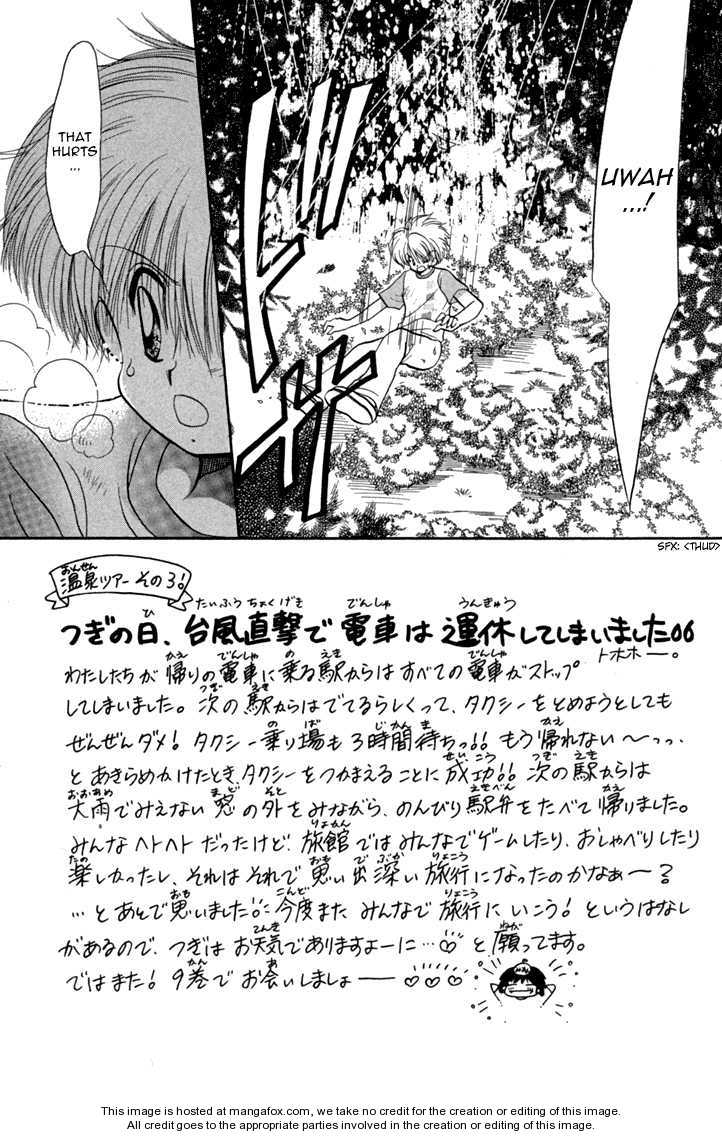 UWAH
...!
ドザッ
THAT
HURTS
...
SFX: <THUD>
温泉ツアー その3!
つぎの日、台風直撃で電車は運休してしまいました。。
トホホー。
わたしたちが帰りの電車に乗る駅からはすべての電車がストップ
してしまいました。次の駅からはでてるらしくって、タクシーをとめようとしても
ぜんぜんダメ! タクシー乗り場も3時間待ちっ!! もう帰れない〜っっ、
とあきらめかけたとき、タクシーをつかまえることに成功!! 次の駅からは
大雨でみえない窓の外をみながら、のんびり駅弁をたべて帰りました。
みんなヘトヘトだったけど、旅館ではみんなでゲームしたり、おしゃべりしたり
楽しかったし、それはそれで思い出深い旅行になったのかなぁー?
…とあとで思いました。今度また みんなで旅行にいこう! というはなし
があるので、つぎは お天気でありますよーに…♡ と願ってます。
ではまた! 9巻でお会いしましょー ♡♡♡
This image is hosted at mangafox.com, we take no credit for the creation or editing of this image.
All credit goes to the appropriate parties involved in the creation or editing of this image.